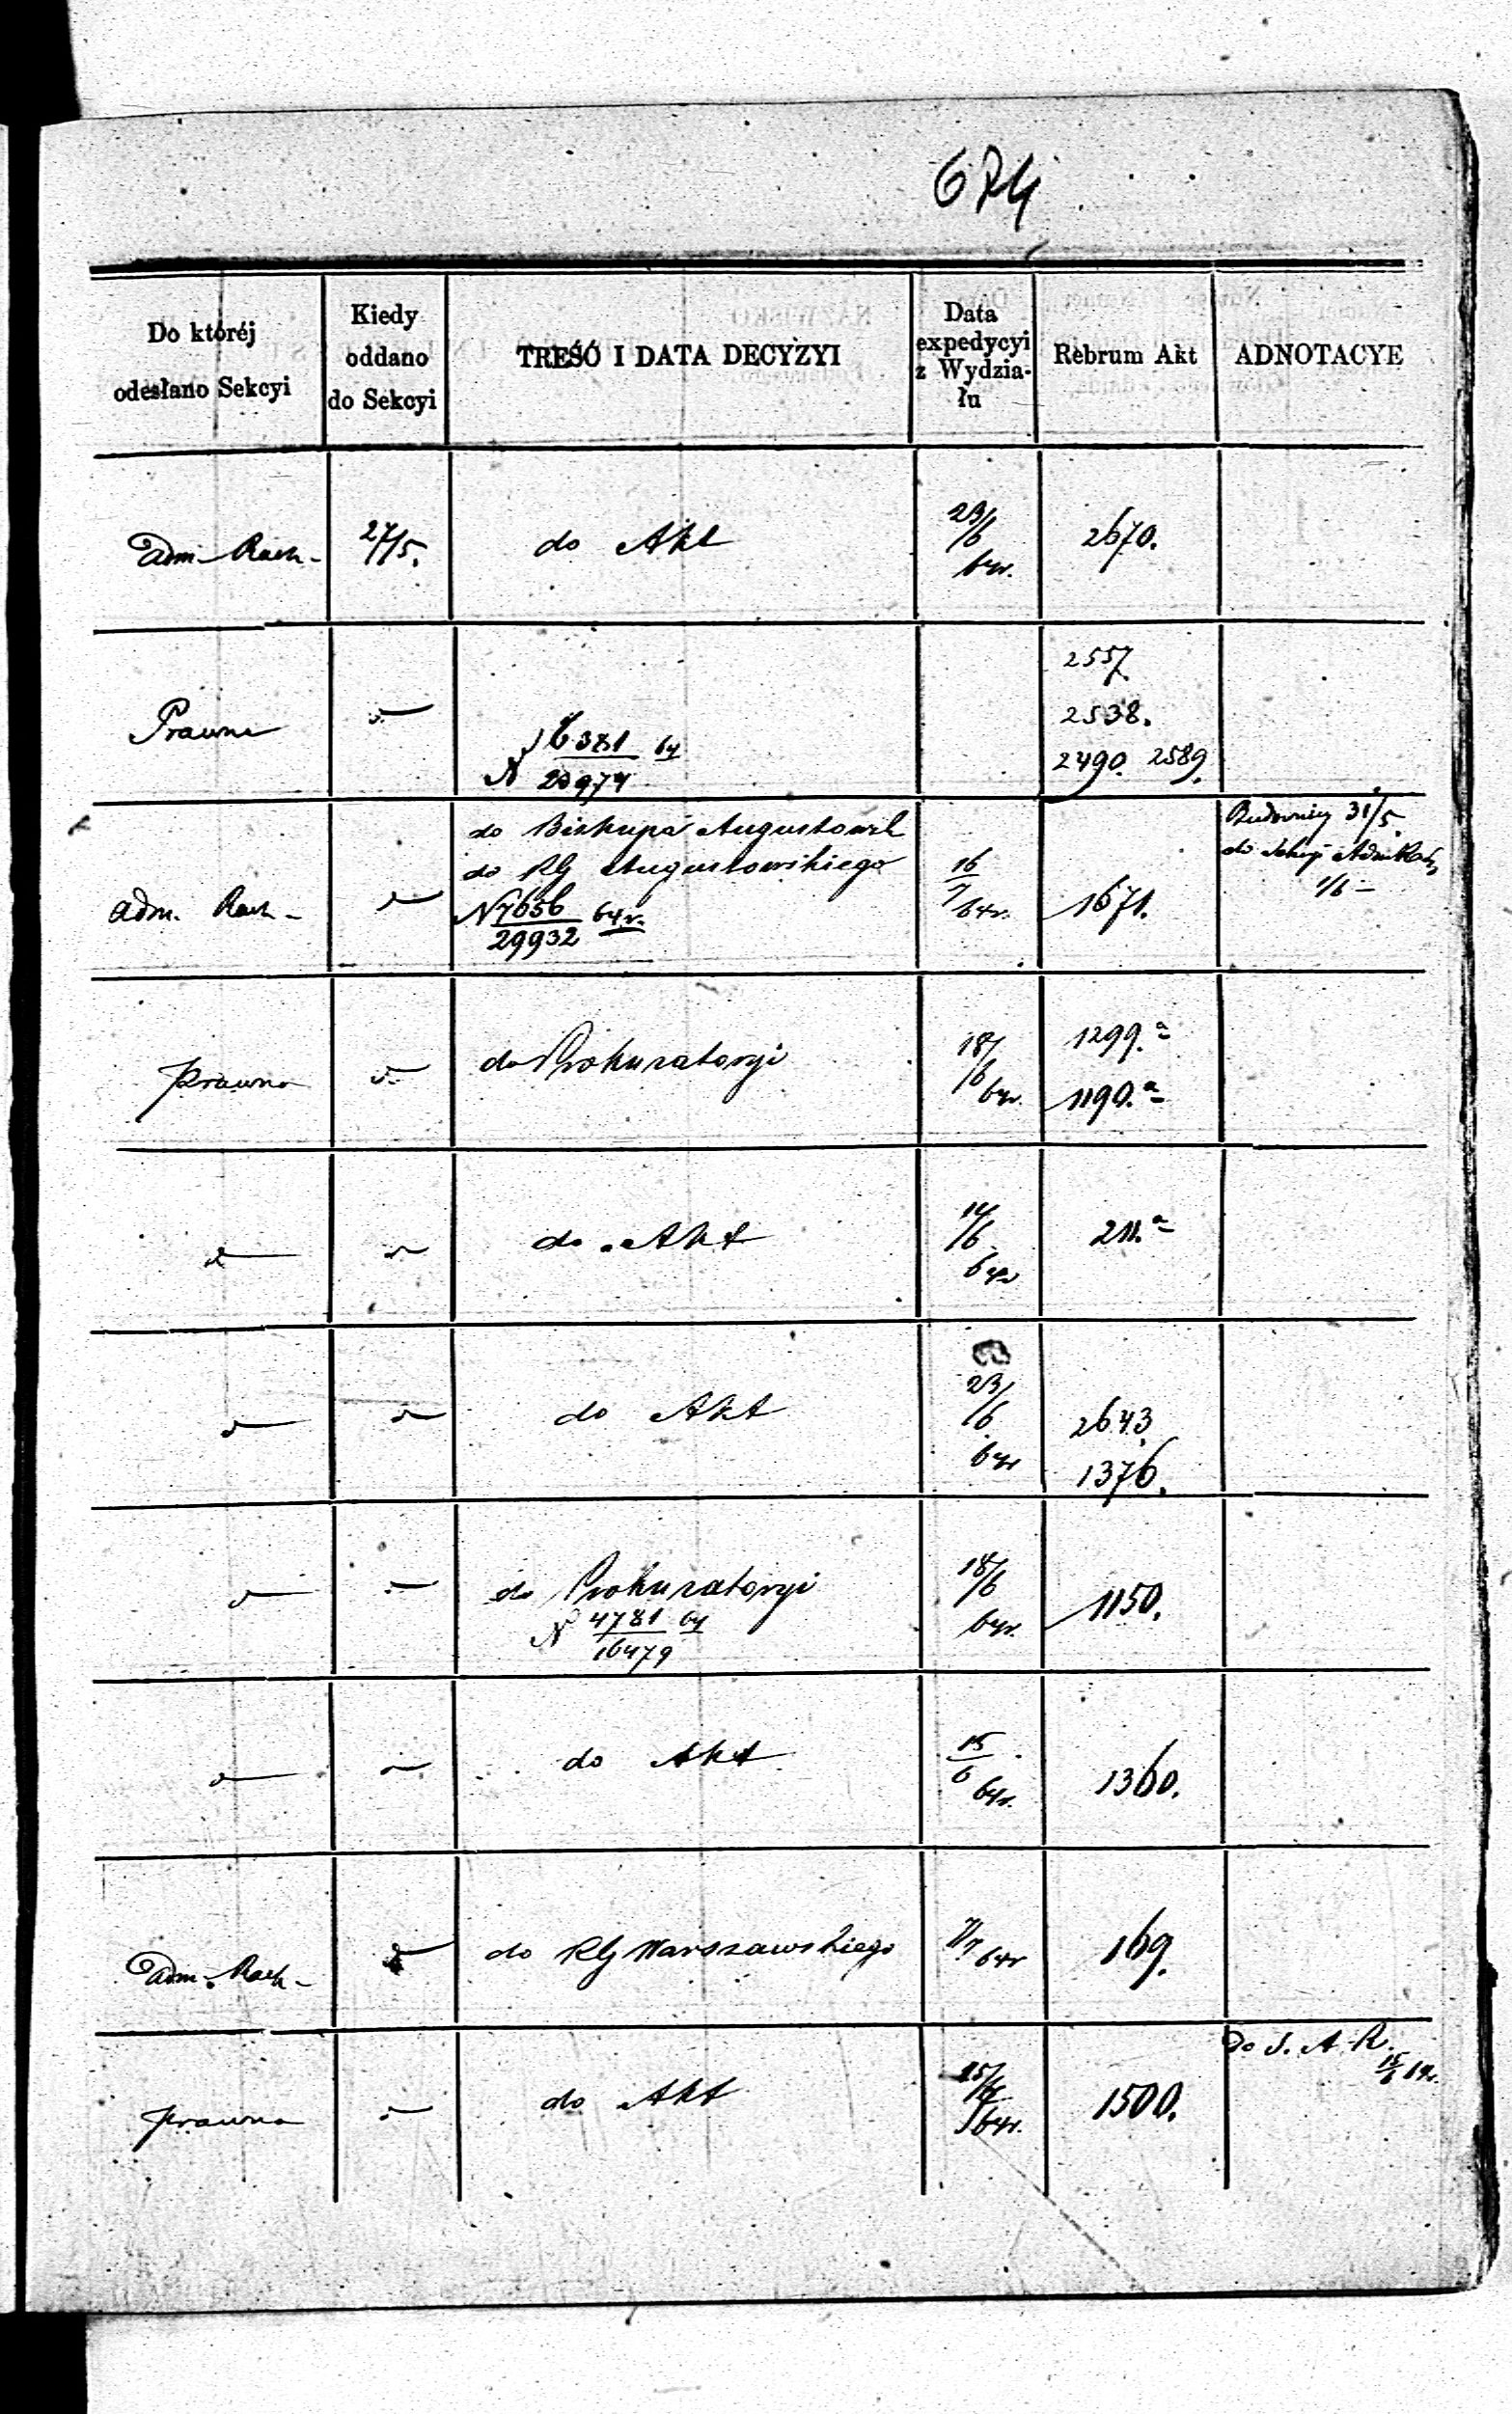 674
Do któréj odesłano Sekcyi
Kiedy oddano do Sekcyi
TREŚĆ I DATA DECYZYI
Data expedycyi z Wydzia-łu
Rebrum Akt
ADNOTACYE
Adm. Rach. 27/5. do Akt 23/6 64r. 2670.
2557.
Prawna 2538.
N 6381/20974 64 2490. 2589.
do Biskupa Augustowsk 31/5.
do RG Augustowskiego 16/7 64r. do Sekcyi Adm Rach
Adm. Rach. N 7656/29932 64r. 1671. 1/6
Prawna do Prokuratoryi 18/6 64r. 1299.a
1190.a
do Akt 14/6 64r 211.a
do Akt 23/6 64r 2643.
1376.
do Prokuratoryi 18/6 64r. 1150.
N 4781/16479 64
do Akt 15/6 64r. 1360.
Adm. Rach. do RG Warszawskiego 7/7 64r 169.
do S. A. R. 15/6 64r.
Prawna do Akt 64r. 1500.